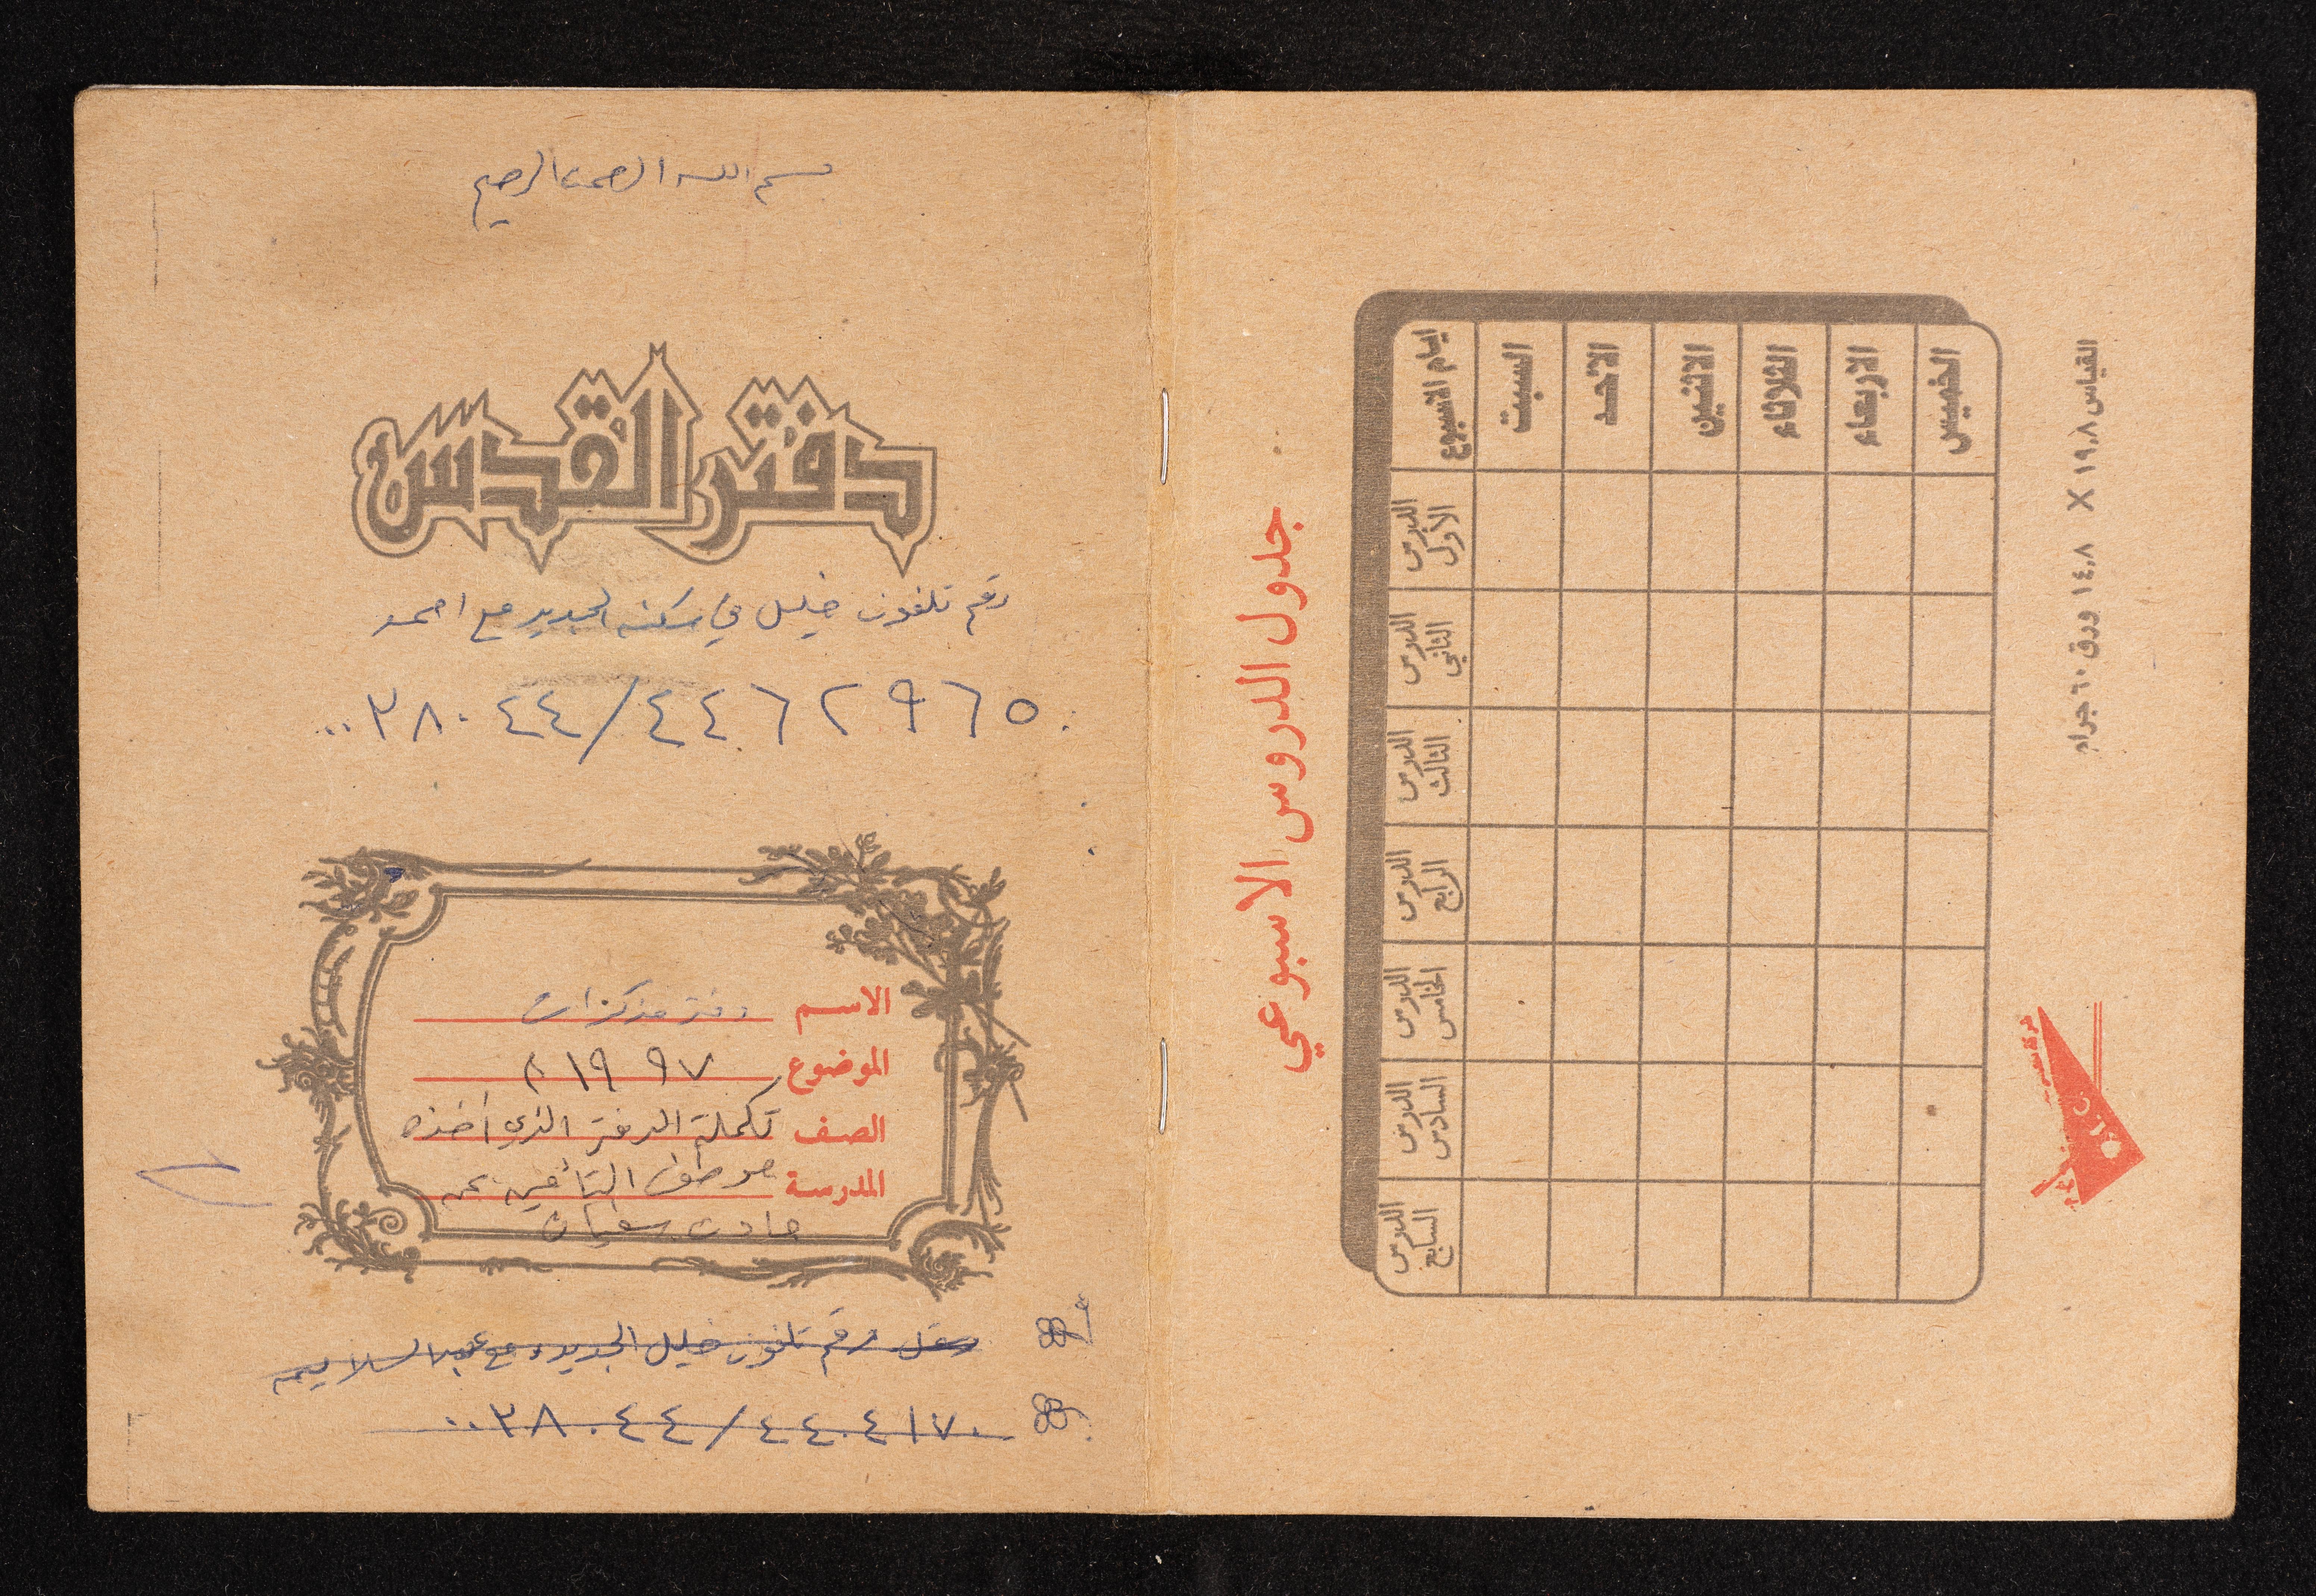 بسم الله الرحمن الرحيم
دفتر القدس
رقم تلفون خليل في سكنه الجديد مع احمد
٠٠٣٨٠٤٤/٤٤٦٢٩٦٥
الاسم دفتر مذكرات
الموضوع ١٩٩٧م
الصف تكملة الدفتر الذي أخذه
المدرسة موظف التأمين عن
حادث سفيان
رقم تلفون خليل الجديد مع عبدالسلام
٠٠٣٨٠٤٤/٤٤٠٤١٧٠
جدول الدروس الاسبوعي
ايام الاسبوع
السبت
الاحد
الاثنين
الثلاثاء
الاربعاء
الخميس
الدرس الأول
الدرس الثاني
الدرس الثالث
الدرس الرابع
الدرس الخامس
الدرس السادس
الدرس السابع
القياس ١٩,٨ X ١٤,٨ ورق ٦٠ جرام